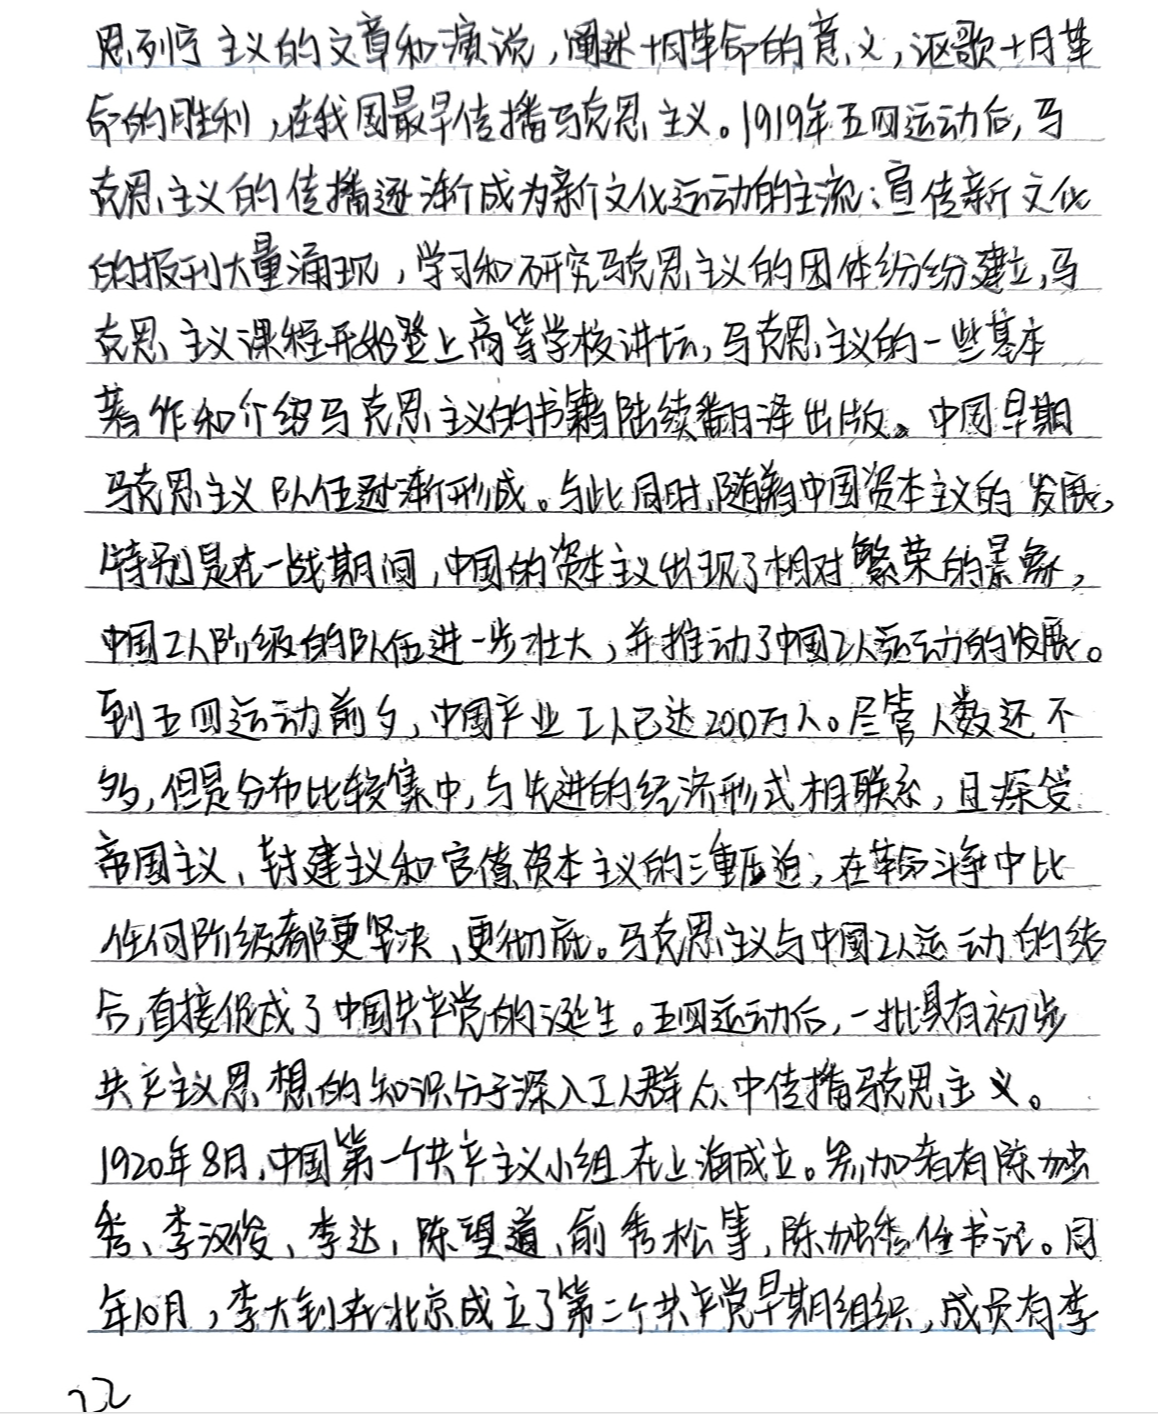 思列宁主义的文章和演说，阐述十月革命的意义，讴歌十月革
命的胜利，在我国最早传播马克思主义。1919年五四运动后，马
克思主义的传播逐渐成为新文化运动的主流：宣传新文化
的报刊大量涌现，学习和研究马克思主义的团体纷纷建立，马
克思主义课程开始登上高等学校讲坛，马克思主义的一些基本
著作和介绍马克思主义的书籍陆续翻译出版。中国早期
马克思主义队伍逐渐形成。与此同时，随着中国资本主义的发展，
特别是在一战期间，中国的资本主义出现了相对繁荣的景象，
中国工人阶级的队伍进一步壮大，并推动了中国工人运动的发展。
到五四运动前夕，中国产业工人已达200万人。尽管人数还不
多，但是分布比较集中，与先进的经济形式相联系，且深受
帝国主义、封建主义和官僚资本主义的三重压迫，在革命斗争中比
任何阶级都更坚决、更彻底。马克思主义与中国工人运动的结
合，直接促成了中国共产党的诞生。五四运动后，一批具有初步
共产主义思想的知识分子深入工人群众中传播马克思主义。
1920年8月，中国第一个共产主义小组在上海成立。参加者有陈独
秀、李汉俊、李达，陈望道、俞秀松等，陈独秀任书记。同
年10月，李大钊在北京成立了第二个共产党早期组织，成员有李
22